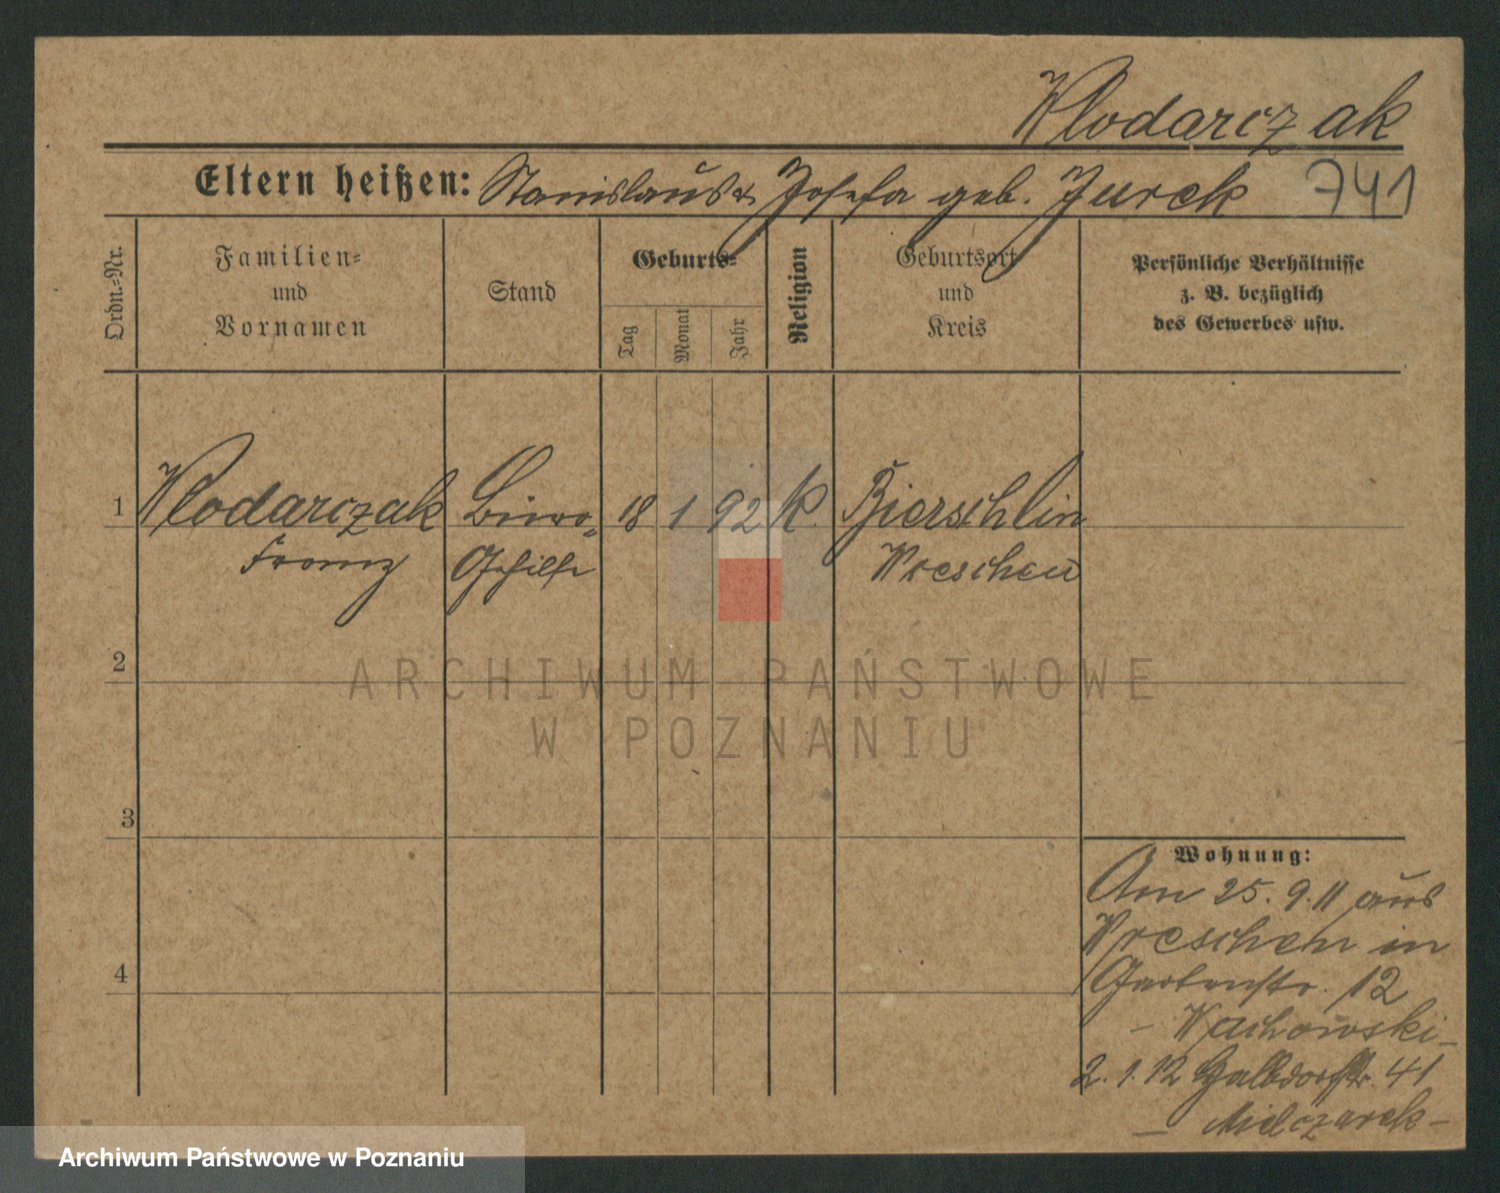 Wlodarczak
Eltern heißen: Stanislaus u. Josefa geb. Jurek 741
Ordn.-Nr.
Familien-
und
Vornamen
Stand
Geburts-
Tag
Monat
Jahr
Religion
Geburtsort
und
Kreis
Persönliche Verhältnisse
z. B. bezüglich
des Gewerbes usw.
1 Wlodarczak Büro- 18 1 92 K. Bierschlin
Franz Gehilfe Wreschen
2
ARCHIWUM PAŃSTWOWE
W POZNANIU
3
4
Wohnung:
Am 25.9.11 aus
Wreschen in
Gartenstr. 12
- Wachowski -
2.1.12 41
- Mielczarek -
Archiwum Państwowe w Poznaniu